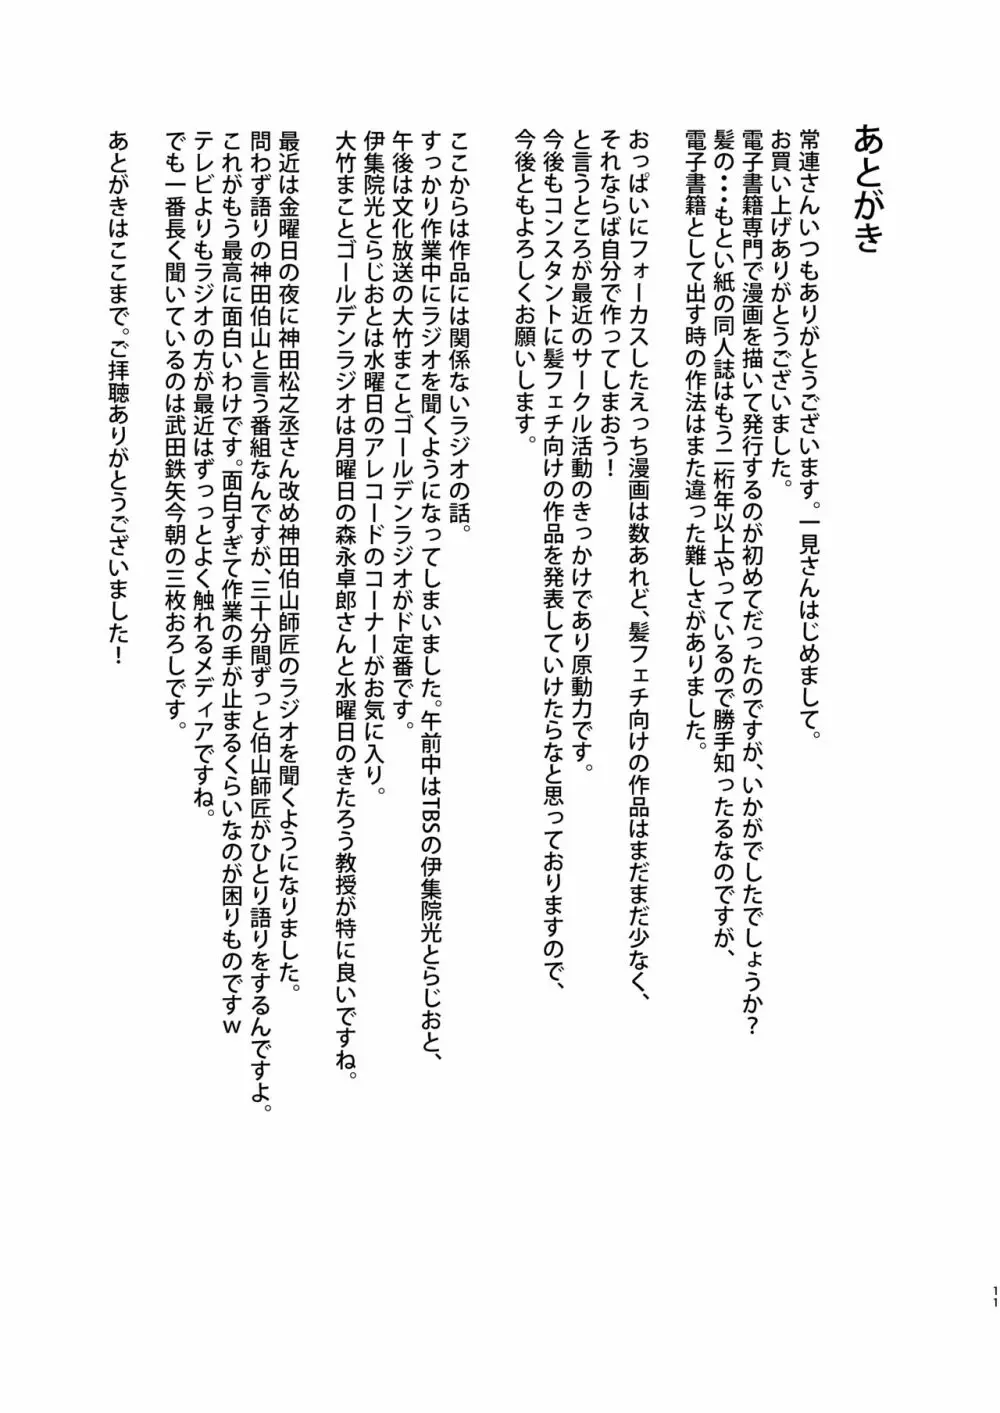 あとがき
常連さんいつもありがとうございます。一見さんはじめまして。
お買い上げありがとうございました。
電子書籍専門で漫画を描いて発行するのが初めてだったのですが、いかがでしたでしょうか？
髪の・・・もとい紙の同人誌はもう二桁年以上やっているので勝手知ったるなのですが、
電子書籍として出す時の作法はまた違った難しさがありました。
おっぱいにフォーカスしたえっち漫画は数あれど、髪フェチ向けの作品はまだまだ少なく、
それならば自分で作ってしまおう！
と言うところが最近のサークル活動のきっかけであり原動力です。
今後もコンスタントに髪フェチ向けの作品を発表していけたらなと思っておりますので、
今後ともよろしくお願いします。
ここからは作品には関係ないラジオの話。
すっかり作業中にラジオを聞くようになってしまいました。午前中はTBSの伊集院光とらじおと、
午後は文化放送の大竹まことゴールデンラジオがド定番です。
伊集院光とらじおとは水曜日のアレコードのコーナーがお気に入り。
大竹まことゴールデンラジオは月曜日の森永卓郎さんと水曜日のきたろう教授が特に良いですね。
最近は金曜日の夜に神田松之丞さん改め神田伯山師匠のラジオを聞くようになりました。
問わず語りの神田伯山と言う番組なんですが、三十分間ずっと伯山師匠がひとり語りをするんですよ。
これがもう最高に面白いわけです。面白すぎて作業の手が止まるくらいなのが困りものですｗ
テレビよりもラジオの方が最近はずっっとよく触れるメディアですね。
でも一番長く聞いているのは武田鉄矢今朝の三枚おろしです。
あとがきはここまで。ご拝聴ありがとうございました！
11